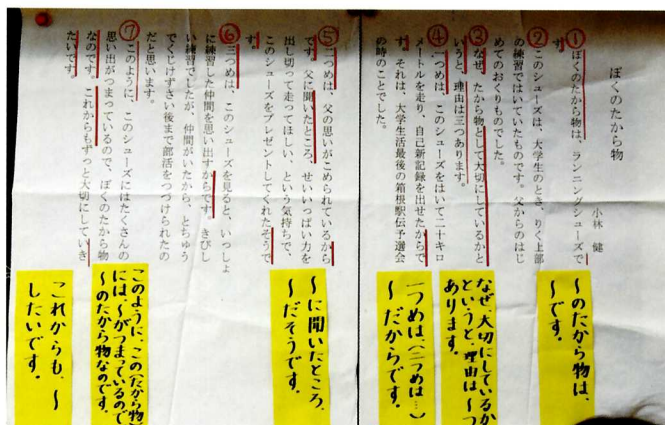 ぼくのたから物
小林 健
①ぼくのたから物は、ランニングシューズで
す。
②このシューズは、大学生のとき、りく上部
の練習ではいていたものです。父からのはじ
めてのおくりものでした。
③なぜ、たから物として大切にしているかと
いうと、理由は三つあります。
④一つめは、このシューズをはいて二十キロ
メートルを走り、自己新記録を出せたからで
す。それは、大学生活最後の箱根駅伝予選会
の時のことでした。
⑤二つめは、父の思いがこめられているから
です。父に聞いたところ、せいいっぱい力を
出し切って走ってほしい、という気持ちで、
このシューズをプレゼントしてくれたそうで
す。
⑥三つめは、このシューズを見ると、いっしょ
に練習した仲間を思い出すからです。きびし
い練習でしたが、仲間がいたから、とちゅう
でくじけずさい後まで部活をつづけられたの
だと思います。
⑦このように、このシューズにはたくさんの
思い出がつまっているので、ぼくのたから物
なのです。これからもずっと大切にしていき
たいです。
〜のたから物は、
〜です。
なぜ、大切にしているか
というと、理由は〜つ
あります。
一つめは、(二つめは…)
〜だからです。
〜に聞いたところ、
〜だそうです。
このように、この(たから物)
には、〜がつまっているので
〜のたから物なのです。
これからも、〜
したいです。